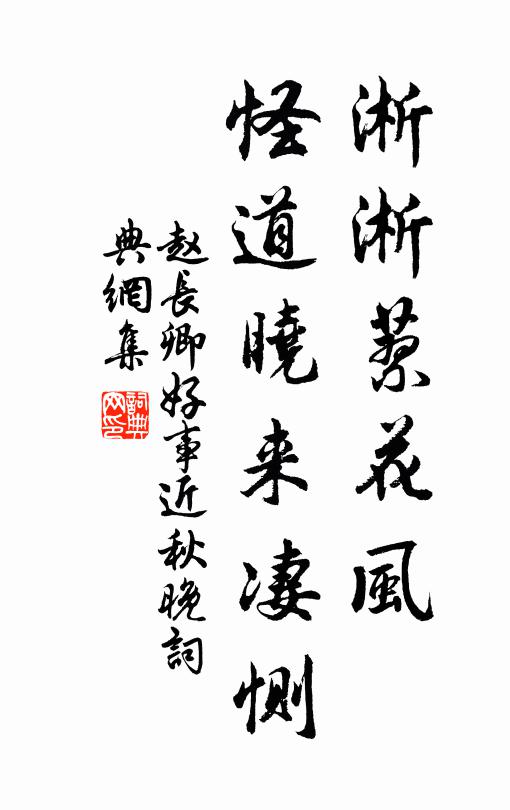 淅淅蓼花風
怪道曉来凄惻
赵長卿好事近秋晚詞
典網集
詞典
网印